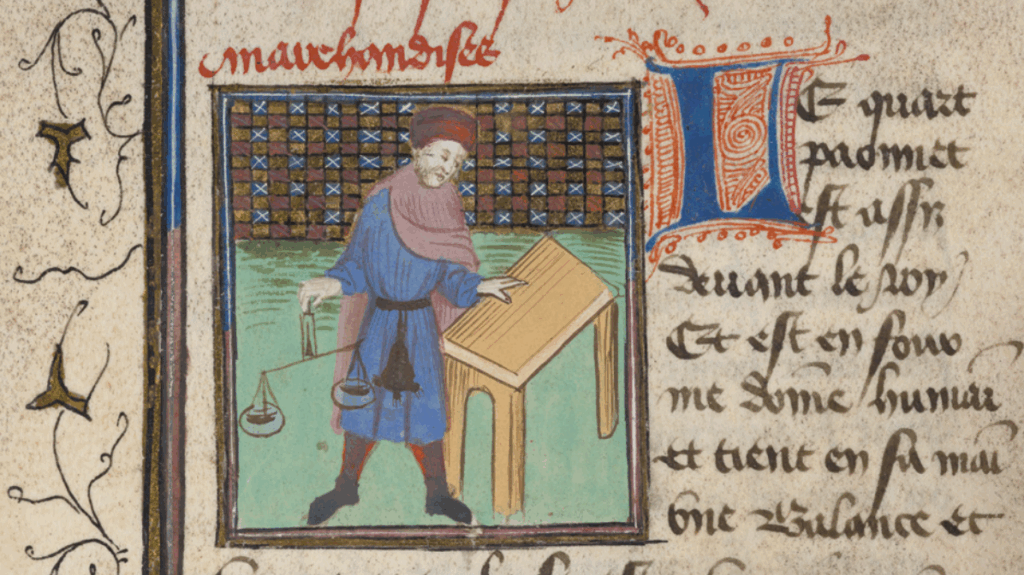 marchandises
Le quart
paonnet
est assis
devant le roy
Et est en fourme
dōme humai
et tient en sa mai
vne Balance et